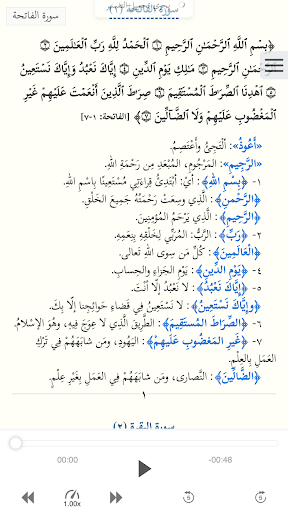 سورة الفاتحة
﴿بِسْمِ اللَّهِ الرَّحْمَٰنِ الرَّحِيمِ ۝ الْحَمْدُ لِلَّهِ رَبِّ الْعَالَمِينَ ۝
الرَّحْمَٰنِ الرَّحِيمِ ۝ مَالِكِ يَوْمِ الدِّينِ ۝ إِيَّاكَ نَعْبُدُ وَإِيَّاكَ نَسْتَعِينُ
۝ اهْدِنَا الصِّرَاطَ الْمُسْتَقِيمَ ۝ صِرَاطَ الَّذِينَ أَنْعَمْتَ عَلَيْهِمْ غَيْرِ
الْمَغْضُوبِ عَلَيْهِمْ وَلَا الضَّالِّينَ ۝﴾ [الفاتحة: ١-٧]
«أَعُوذُ»: أَلْتَجِئُ وأَعْتَصِمُ.
«الرَّجِيمِ»: المَرْجُومِ، المُبْعَدِ مِن رَحْمَةِ اللهِ.
١- ﴿بِسْمِ اللهِ﴾ : أيْ: أَبْتَدِئُ قِرَاءَتِي مُسْتَعِينًا بِاسْمِ اللهِ.
﴿الرَّحْمَنِ﴾ : الَّذِي وَسِعَتْ رَحْمَتُهُ جَمِيعَ الخَلْقِ.
﴿الرَّحِيمِ﴾ : الَّذِي يَرْحَمُ المُؤْمِنِينَ.
٢- ﴿رَبِّ﴾ : الرَّبُّ: المُرَبِّي لِخَلْقِهِ بِنِعَمِهِ.
﴿العَالَمِينَ﴾ : كُلِّ مَن سِوَى اللهِ تعالى.
٤- ﴿يَوْمِ الدِّينِ﴾ : يَوْمِ الجَزَاءِ والحِسابِ.
٥- ﴿إِيَّاكَ نَعْبُدُ﴾ : لا نَعْبُدُ إِلَّا أَنْتَ.
﴿وإِيَّاكَ نَسْتَعِينُ﴾ : لا نَسْتَعِينُ فِي قَضاءِ حَوائِجِنا إِلَّا بِكَ.
٦- ﴿الصِّرَاطَ المُسْتَقِيمَ﴾ : الطَّرِيقَ الَّذِي لا عِوَجَ فِيهِ، وهُوَ الإسْلامُ.
٧- ﴿غَيْرِ المَغْضُوبِ عَلَيْهِمْ﴾ : اليَهُودِ، ومَن شابَهَهُمْ فِي تَرْكِ
العَمَلِ بِالعِلْمِ.
﴿الضَّالِّينَ﴾ : النَّصارى، ومَن شابَهَهُمْ فِي العَمَلِ بِغَيْرِ عِلْمٍ.
١
سورة البقرة (٢)
00:00
-00:48
1.00x
5
5